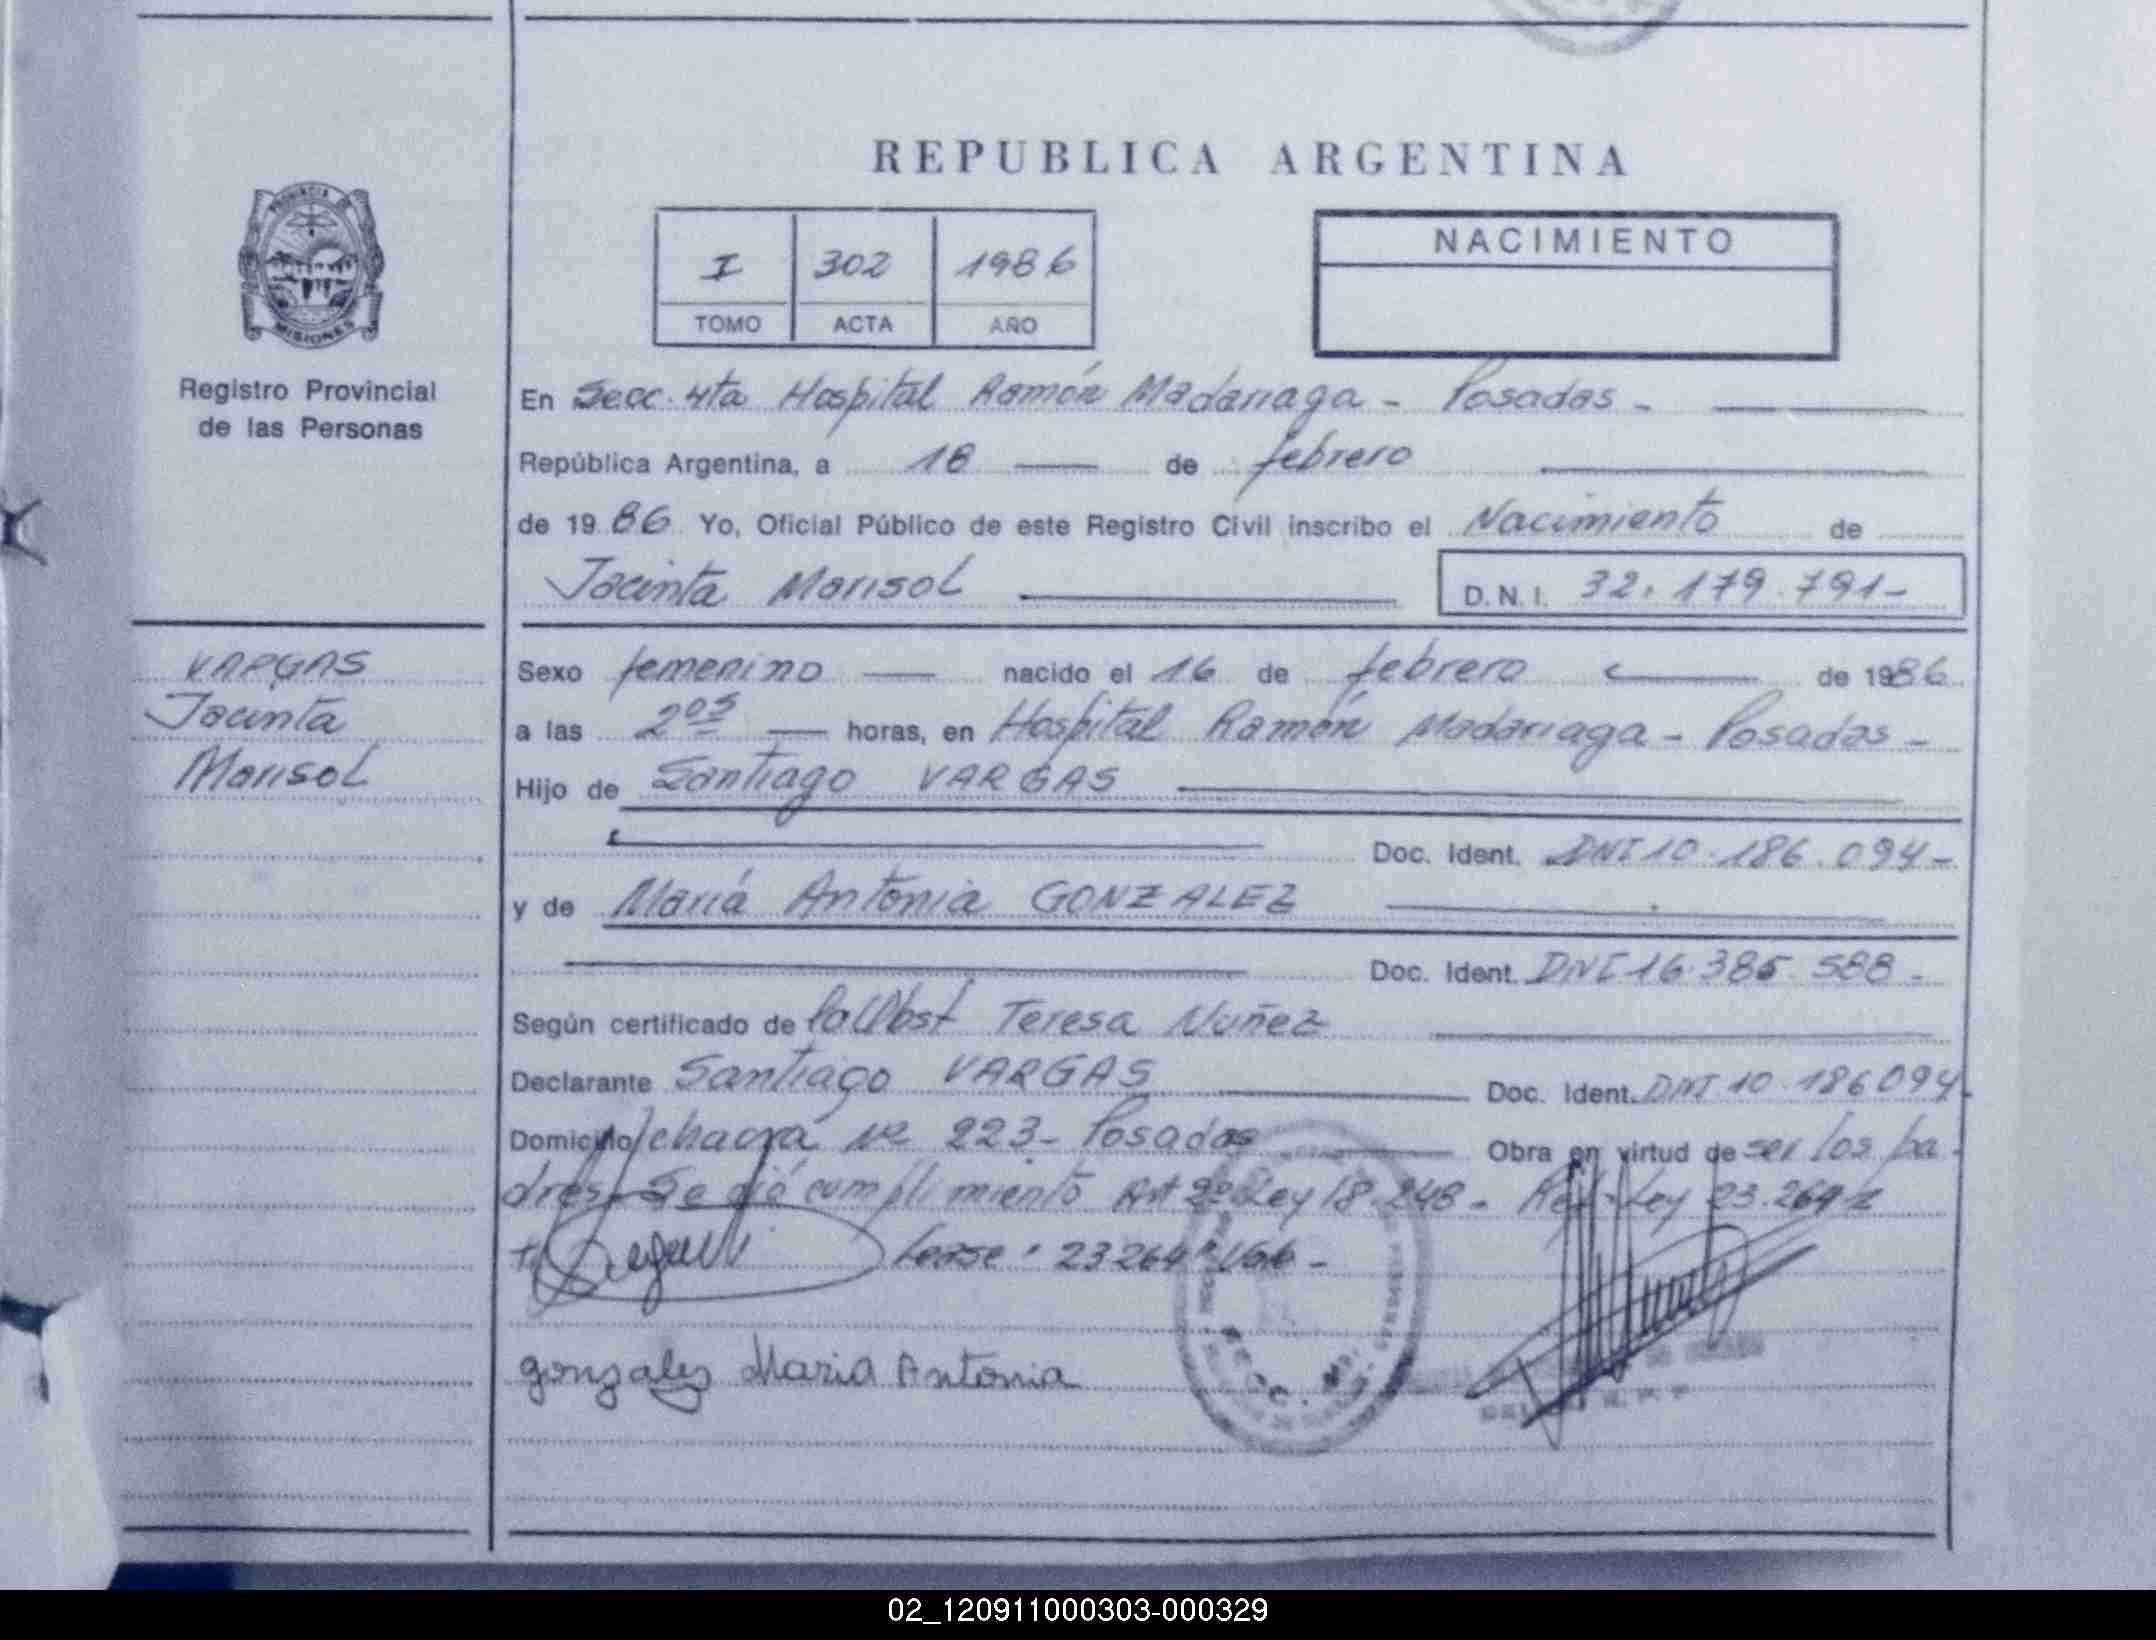 REPUBLICA ARGENTINA
PROVINCIA DE
MISIONES
Registro Provincial
de las Personas
I 302 1986
TOMO ACTA AÑO
NACIMIENTO
En Secc. 4ta Hospital Ramón Madariaga - Posadas -
República Argentina, a 18 de febrero
de 1986 Yo, Oficial Público de este Registro Civil inscribo el Nacimiento de
Jacinta Marisol D.N.I. 32.179.791-
VARGAS
Jacinta
Marisol
Sexo femenino nacido el 16 de febrero de 1986
a las 2 05 horas, en Hospital Ramón Madariaga - Posadas -
Hijo de Santiago VARGAS
Doc. Ident. DNI 10.186.094-
y de María Antonia GONZALEZ
Doc. Ident. DNI 16.385.588-
Según certificado de la Obst Teresa Nuñez
Declarante Santiago VARGAS Doc. Ident. DNI 10.186094-
Domicilio chacra Nº 223- Posadas Obra en virtud de ser los pa-
dres. Se dió cumplimiento Art 2º Ley 18.248- Ley 23.264
Lease: 23264 Vale-
gonzales Maria Antonia
02_120911000303-000329